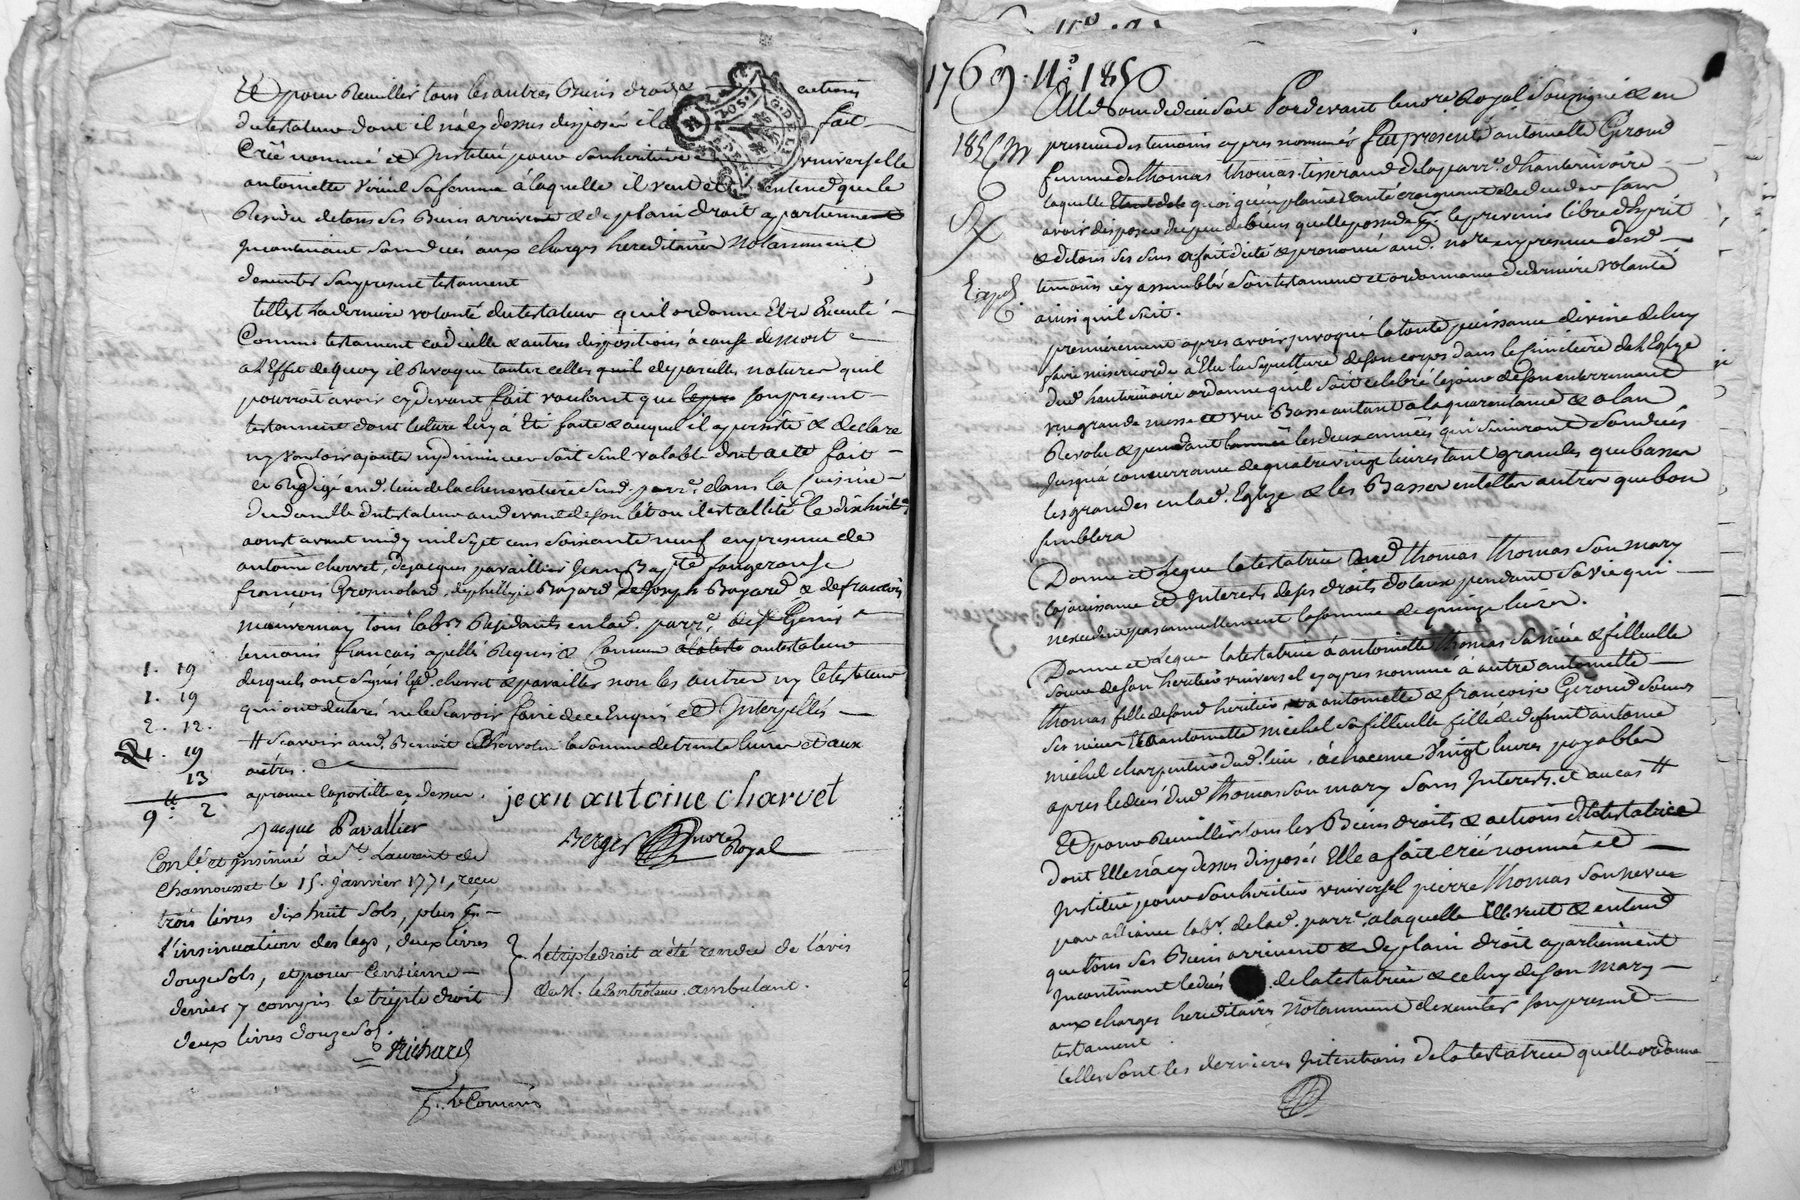 Et pour Recuillir tous les autres Biens droits actions
du testateur dont il n'a cy dessus disposé il a fait
Créé nommé et Jnstitué pour son heritiere universelle
antoinette viricel sa femme à laquelle il veut et entend que le
Residu de tous ses Biens arrivent & de plain droit apartiennent
Jncontinant son decés aux charges hereditaires Notamment
dexecuter son present testament
telle est la derniere volonté du testateur qu'il ordonne Etre Executé
Comme testament codicille & autres dispositions à cause de mort
a L'Effet de quoy il Revoque toutes celles quil de pareilles natures quil
pourroit avoir cy devant fait voulant que son present
testament dont lecture luy à Eté faite & auquel il a persisté & declare
ny vouloir ajouter ny diminuer soit seul valable dont acte fait
et Redigé en d. lieu de la chenevatiere sus d. parr.e dans la Cuisine
du domicille du testateur au devant de son lit ou il est allité le dixhuit.e
aoust avant midy mil sept cens soixante neuf en presence de
antoine chervet, de jacques pavaillier Jean Bap.te fougerouse
françois Grosmolard, de phillipe Bazard de Joseph Bazard & de françois
mauvernay tous lab.rs Residants en lad. parr.e de S.t Genis
temoins français apellés Requis & Connus au testateur
desquels ont signés led. chervet & pavailler non les autres ny le testateur
qui ont declarés ne le scavoir faire de ce Enquis et Jnterpellés
# scavoir aud. Benoit la somme de trente livres et aux
autres.
aprouve lapostille cy dessus.
1. 19
1. 19
2. 12.
1. 19
13
9.# 2
jean antoine charvet
Jacque Pavallier
Berger nore Royal
Con.lé et insinué à S.t Laurent de
Chamousset le 15. janvier 1771, recu
trois livres dix huit sols, plus p.r
l'insinuation des legs, deux livres
douze sols, et pour Centieme
denier y compris le triple droit
deux livres douze sols.
Richard
Le triple droit a été rendu de l'avis
de M. le Controleur ambulant.
1769. N.o 185
185
Exped.
Au Nom de dieu soit Pardevant le no.re Royal soussigné & en
presence des temoins cy apres nommés fut presente antoinette Giroud
femme de thomas thomas tisserand de la parr.e d'hauterivoire
laquelle quoi qu'en pleine santé craignant de deceder sans
avoir disposé du peu de biens quelle possede p.r le prevenir libre d'esprit
& de tous ses sens a fait dicté & prononcé aud. no.re en presence desd.
temoins icy assemblés son testament et ordonnance de derniere volonté
ainsi quil suit.
premierement apres avoir jnvoqué la toute puissance divine de luy
faire misericorde à Elu la sepulture de son corps dans le cimetiere de L'Eglize
dud. hauterivoire ordonne quil soit celebré le jour de son enterrement
une grande messe et une Basse autant a la quarantaine & a lan
Revolu & pendant les deux années qui suivront son decés
jusqu'à concurrance de quatre vingt livres tant grandes que basses
les grandes en lad. Eglize & les Basses en telles autres que bon
semblera
Donne et Legue la testatrice aud. thomas thomas son mary
la jouissance et Jnterests de ses droits dotaux pendant sa vie qui
nexcedent pas annuellement la somme de quinze livres.
Donne et Legue la testatrice à antoinette thomas sa niéce & filleulle
soeur de son heritier universel cy apres nommé à autre antoinette
thomas fille de sond. heritier à antoinette & françoise Giroud soeurs
ses nieces Et à antoinette michel sa filleulle fille de deffunt antoine
michel charpentier dud. lieu, à chacune vingt livres payables
apres le decés dud. thomas son mary sans Jnterests. et au cas #
Et pour Recuillir tous les Biens droits & actions de la testatrice
dont Elle n'a cy dessus disposés Elle a fait créé nommé et
Jnstitué pour son heritier universel pierre thomas son neveu
par alliance lab.r de lad. parr.e a laquelle Elle veut & entend
que tous ses Biens arrivent & de plain droit apartiennent
Jncontinant le decés de la testatrice & celuy de son mary
aux charges hereditaires Notamment dexecuter son present
testament
telles sont les dernieres Jntentions de la testatrice quelle ordonne